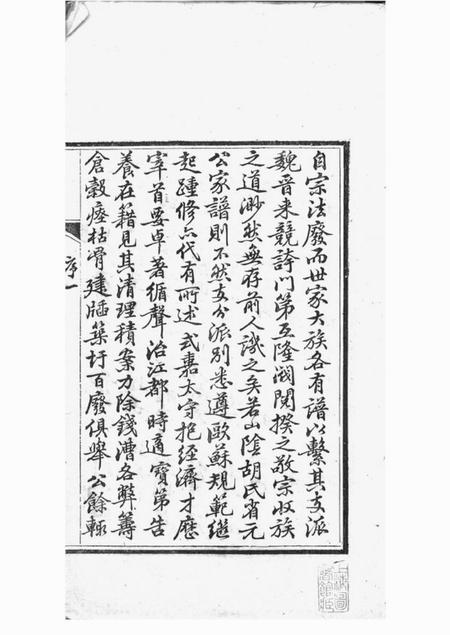 自宗法廢而世家大族各有譜以繫其支派
魏晉来競誇門第互隆閥閱揆之敬宗收族
之道渺然無存前人譏之矣若山陰胡氏省元
公家譜則不然支分派別悉遵歐蘇規範继
起踵修六代有所述式嘉太守抱經濟才歷
宰首要卓著循聲治江都時適寳第告
養在籍見其清理積案力除錢漕各弊籌
倉穀瘞枯骨建牐築圩百廢俱舉公餘輙
序一